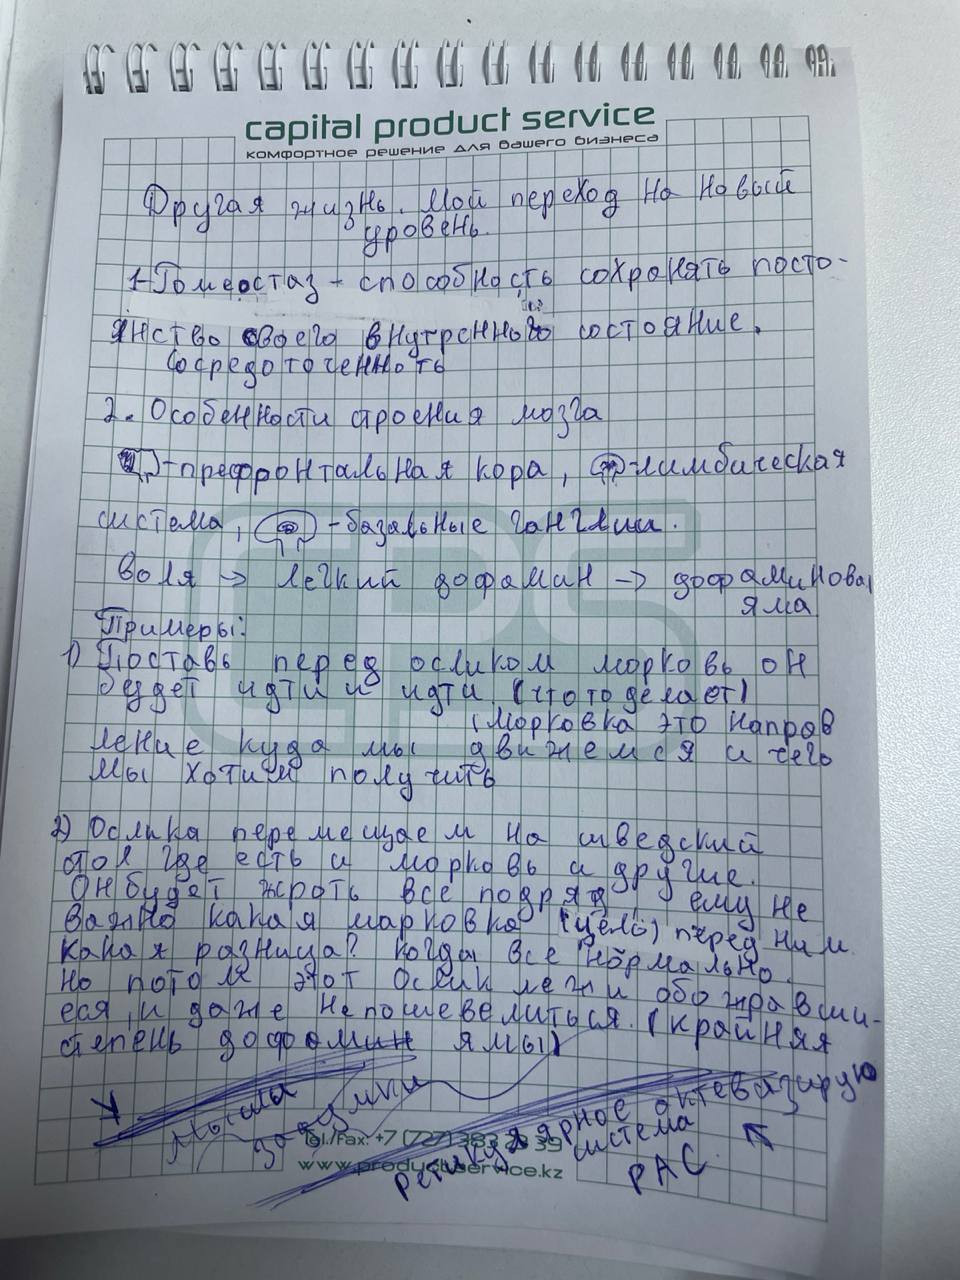 capital product service
комфортное решение для вашего бизнеса
Другая жизнь. Мой переход на новый
уровень.
1. Гомеостаз - способность сохронять посто-
янство своего внутренного состояние.
Сосредоточенность
2. Особенности строения мозга
- префронтальная кора, - лимбическая
система, - базальные ганглии.
Воля → легкий дофамин → дофаминовая
яма
Примеры:
1) Поставь перед осликом морковь он
будет идти и идти (что то делает)
(морковка это направ
ление куда мы движемся и чего
мы хотим получить
2) Ослика перемещаем на шведский
стол где есть и морковь и другие.
Он будет жроть все подряд, ему не
важно какая марковка (цель) перед ним.
какая разница? когда все нормально.
Но потом этот ослик лежи обожравши-
еся, и даже не пошевелиться. (крайняя
степень дофомин ямы)
CPS
Мысли
задумки
ретикулярное октевазирую
система
РАС
Tel./Fax: +7 (727) 383 39
www.productservice.kz